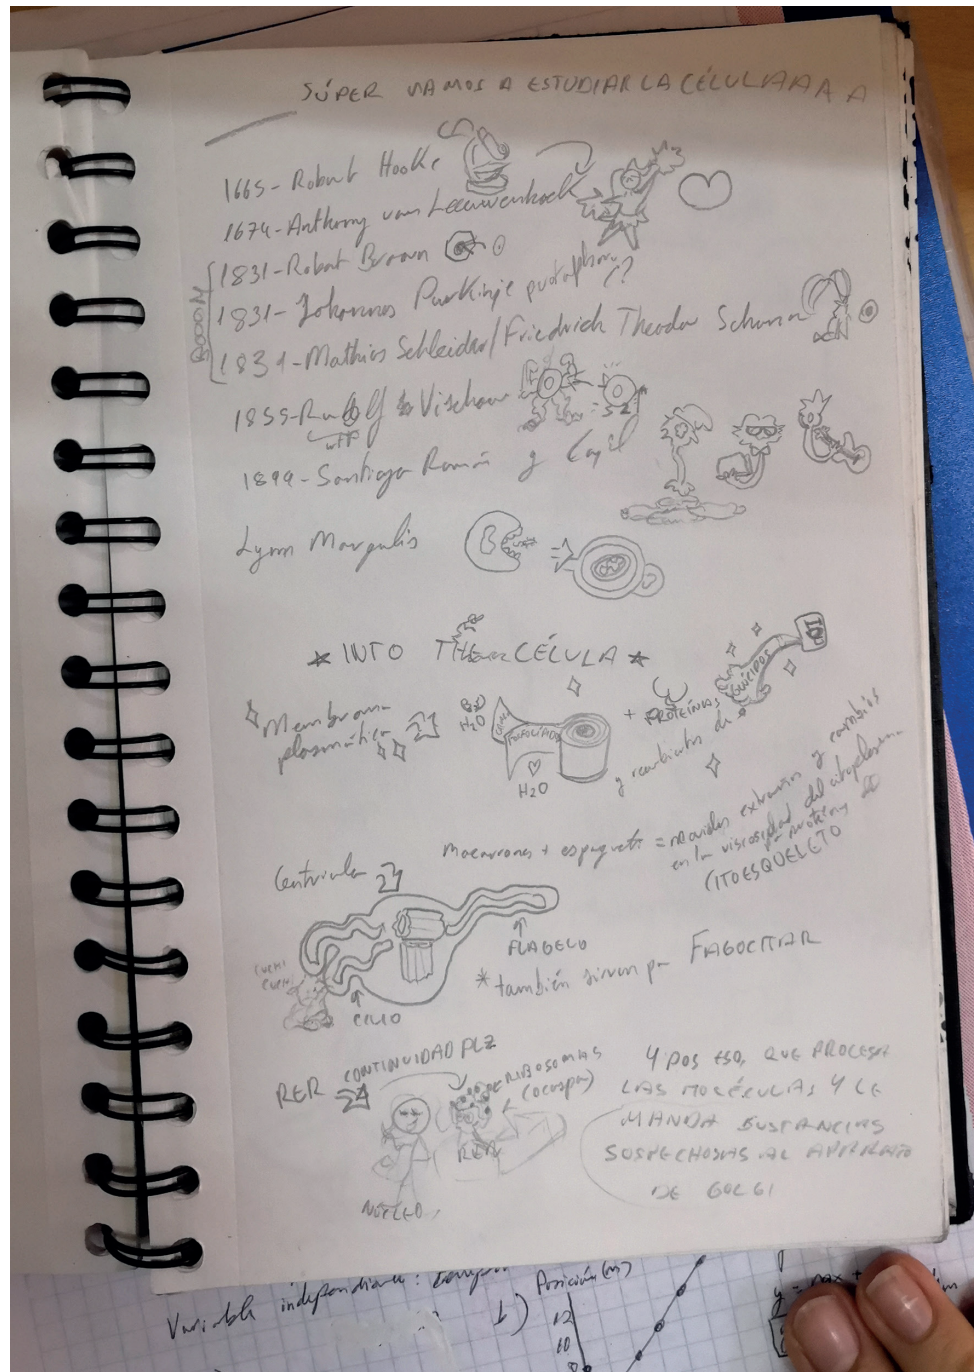 SÚPER VAMOS A ESTUDIAR LA CÉLULAAA A A
1665- Robert Hooke
1674- Anthony van Leeuwenhoek
BOOOM
1831- Robert Brown
1831- Johannes Purkinje
183 - Mathias Schleider/Friedrich Theodor
1855- Rudolf Vischow
WTF
1899- Santiago Ramón y Cajal
Lynn Margulis
★ INTO THE CÉLULA ★
Membrana plasmática
H2O
H2O
+ PROTEÍNAS
y recubiertos de
GLÚCIDOS
macarrones + espaguetti = movidas extrañas y cambios
en la viscosidad del citoplasma
CITOESQUELETO
Centriolo
FLAGELO
CUCHI
CUCHI
CILIO
* también sirven pa FAGOCITAR
RER
CONTINUIDAD PLZ
RIBOSOMAS
RER
NÚCLEO
Y POS ESO, QUE PROCESA
LAS MOLÉCULAS Y LE
MANDA SUSTANCIAS
SOSPECHOSAS AL APARATO
DE GOLGI
Variable independiente:
b)
Posición(m)
12
10
8